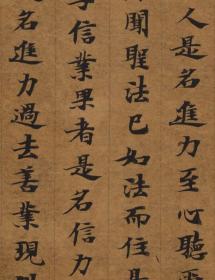 人是名進力至心聽
聞聖法已如法而住是
信業果者是名信力
名進力過去善業現